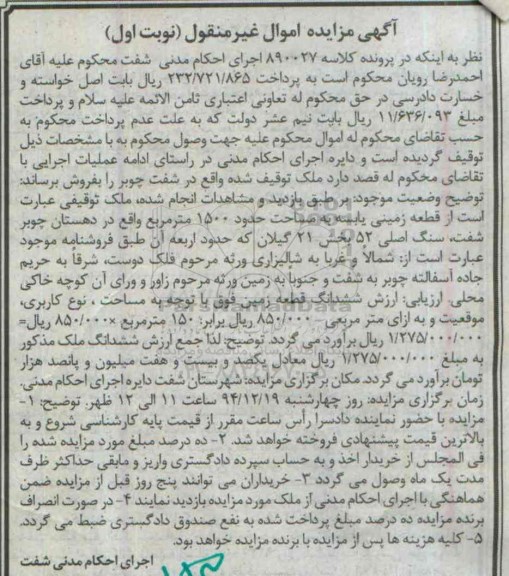 آگهی مزایده اموال غیرمنقول (نوبت اول)
نظر به اینکه در پرونده کلاسه ۸۹۰۰۲۷ اجرای احکام مدنی شفت محکوم علیه آقای
احمدرضا رویان محکوم است به پرداخت ۲۳۲/۷۲۱/۸۶۵ ریال بابت اصل خواسته و
خسارت دادرسی در حق محکوم له تعاونی اعتباری ثامن الائمه علیه سلام و پرداخت
مبلغ ۱۱/۶۳۶/۰۹۳ ریال بابت نیم عشر دولت که به علت عدم پرداخت محکوم به
حسب تقاضای محکوم له اموال محکوم علیه جهت وصول محکوم به با مشخصات ذیل
توقیف گردیده است و دایره اجرای احکام مدنی در راستای ادامه عملیات اجرایی با
تقاضای محکوم له قصد دارد ملک توقیف شده واقع در شفت چوبر را بفروش برساند:
توضیح وضعیت موجود: بر طبق بازدید و مشاهدات انجام شده، ملک توقیفی عبارت
است از قطعه زمینی یابنیه به مساحت حدود ۱۵۰۰ مترمربع واقع در دهستان چوبر
شفت، سنگ اصلی ۵۲ بخش ۲۱ گیلان که حدود اربعه آن طبق فروشنامه موجود
عبارت است از: شمالاً و غرباً به شالیزاری ورثه مرحوم فلک دوست، شرقاً به حریم
جاده آسفالته چوبر به شفت و جنوباً به زمین ورثه مرحوم زاور و ورای آن کوچه خاکی
محلی. ارزیابی: ارزش ششدانگ قطعه زمین فوق با توجه به مساحت ، نوع کاربری،
موقعیت و به ازای متر مربعی ۸۵۰/۰۰۰ ریال برابر: ۱۵۰۰ مترمربع ×۸۵۰/۰۰۰ ریال=
۱/۲۷۵/۰۰۰/۰۰۰ ریال برآورد می گردد. توضیح: لذا جمع ارزش ششدانگ ملک مذکور
به مبلغ ۱/۲۷۵/۰۰۰/۰۰۰ ریال معادل یکصد و بیست و هفت میلیون و پانصد هزار
تومان برآورد می گردد. مکان برگزاری مزایده: شهرستان شفت دایره اجرای احکام مدنی.
زمان برگزاری مزایده: روز چهارشنبه ۹۴/۱۲/۱۹ ساعت ۱۱ الی ۱۲ ظهر. توضیح: ۱-
مزایده با حضور نماینده دادسرا رأس ساعت مقرر از قیمت پایه کارشناسی شروع و به
بالاترین قیمت پیشنهادی فروخته خواهد شد. ۲- ده درصد مبلغ مورد مزایده شده را
فی المجلس از خریدار اخذ و به حساب سپرده دادگستری واریز و مابقی حداکثر ظرف
مدت یک ماه وصول می گردد ۳- خریداران می توانند پنج روز قبل از مزایده ضمن
هماهنگی با اجرای احکام مدنی از ملک مورد مزایده بازدید نمایند ۴- در صورت انصراف
برنده مزایده ده درصد مبلغ پرداخت شده به نفع صندوق دادگستری ضبط می گردد.
۵- کلیه هزینه ها پس از مزایده با برنده مزایده خواهد بود.
اجرای احکام مدنی شفت